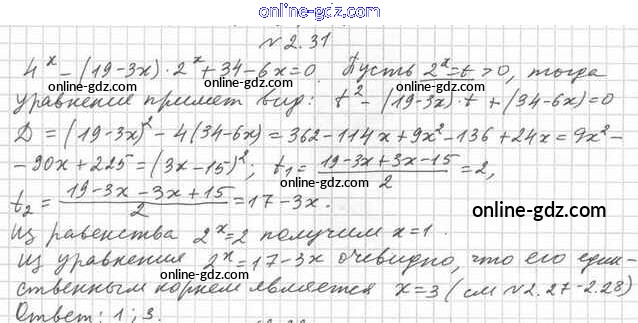 online-gdz.com
№2.31
4^x – (19–3x)·2^x + 34 – 6x = 0. Пусть 2^x = t > 0, тогда
online-gdz.com online-gdz.com
уравнение примет вид: t² – (19–3x)·t + (34–6x) = 0
D = (19–3x)² – 4(34–6x) = 362 – 114x + 9x² – 136 + 24x = 9x² –
online-gdz.com online-gdz.com
– 90x + 225 = (3x–15)²; t₁ = (19–3x+3x–15)/2 = 2,
t₂ = (19–3x–3x+15)/2 = 17–3x.
online-gdz.com
online-gdz.com
Из равенства 2^x = 2 получим x = 1.
online-gdz.com
Из уравнения 2^x = 17–3x очевидно, что его един-
online-gdz.com
ственным корнем является x = 3 (см №2.27–2.28)
online-gdz.com
Ответ: 1; 3.